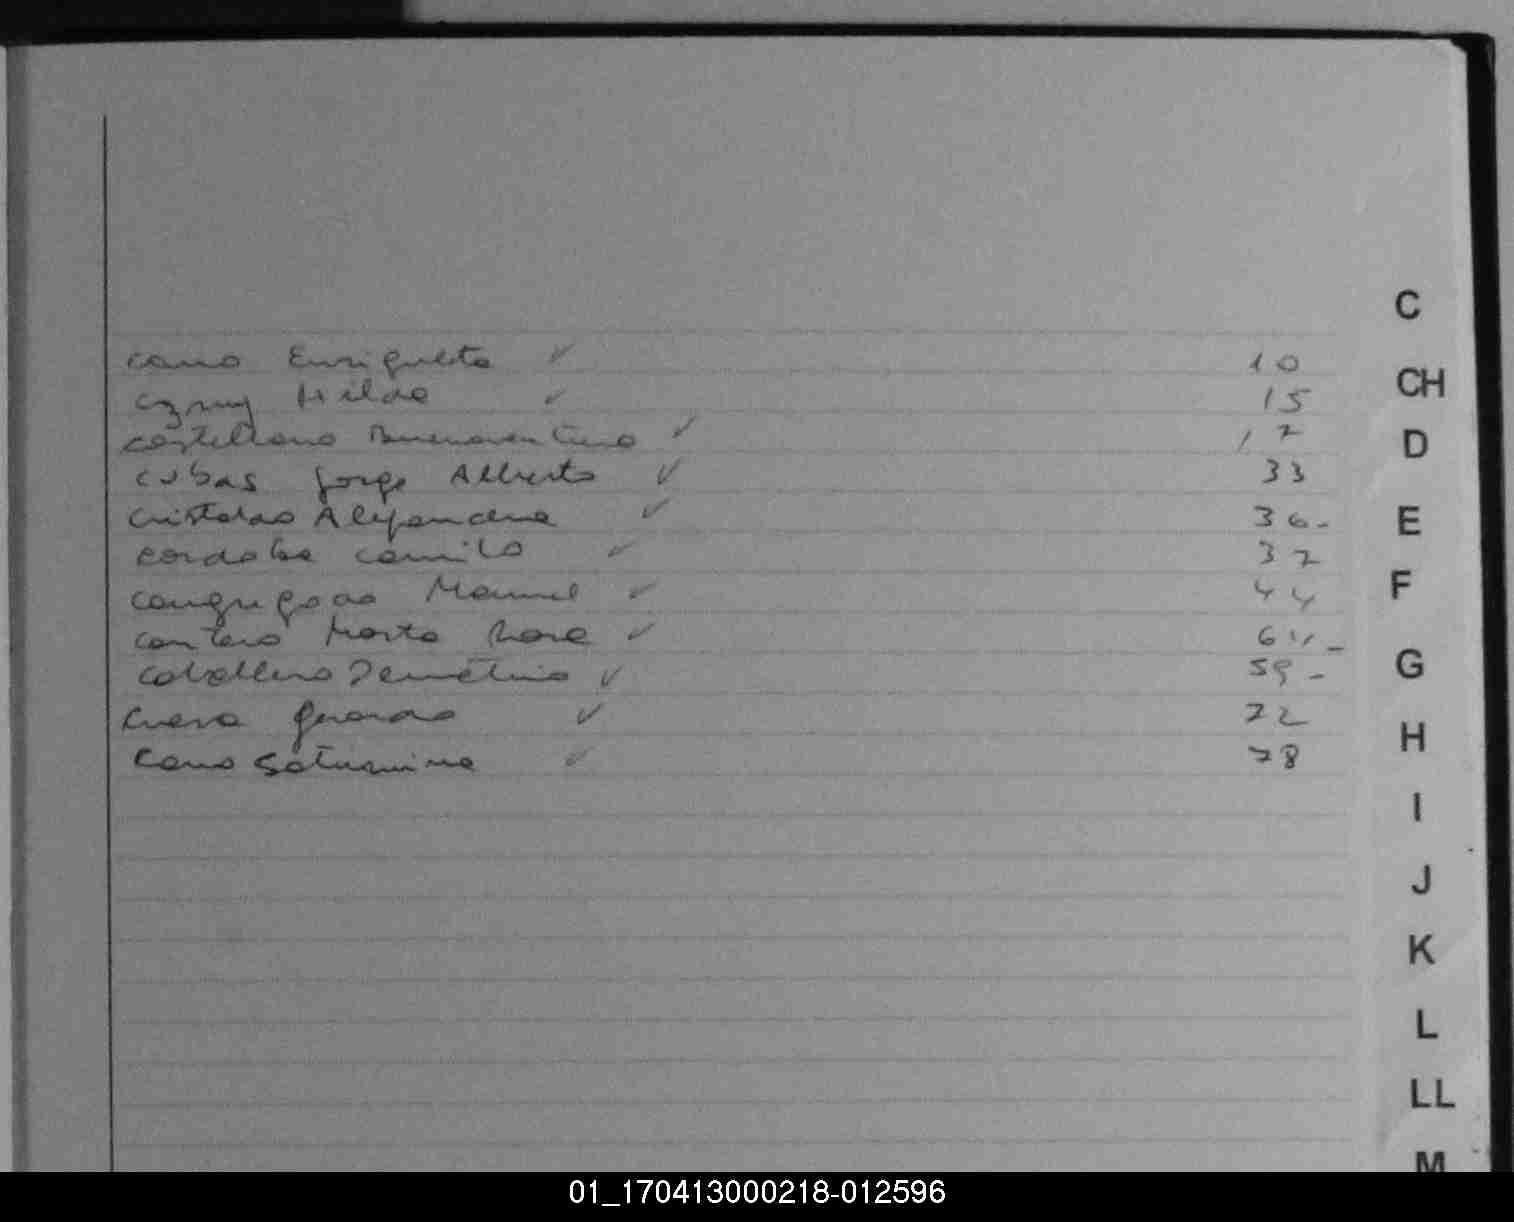 Cano Enriqueta ✓ 10
Czmuj Hilda ✓ 15
Castellano Buenaventura ✓ 17
Cubas Jorge Alberto ✓ 33
Cristaldo Alejandra ✓ 36-
Cordoba Camilo ✓ 37
Cangregado Manuel ✓ 44
Cantero Marta ✓
Caballero Demetrio ✓ 59-
Cueva Gerardo ✓ 72
Cano Saturnina ✓ 78
C
CH
D
E
F
G
H
I
J
K
L
LL
M
01_170413000218-012596